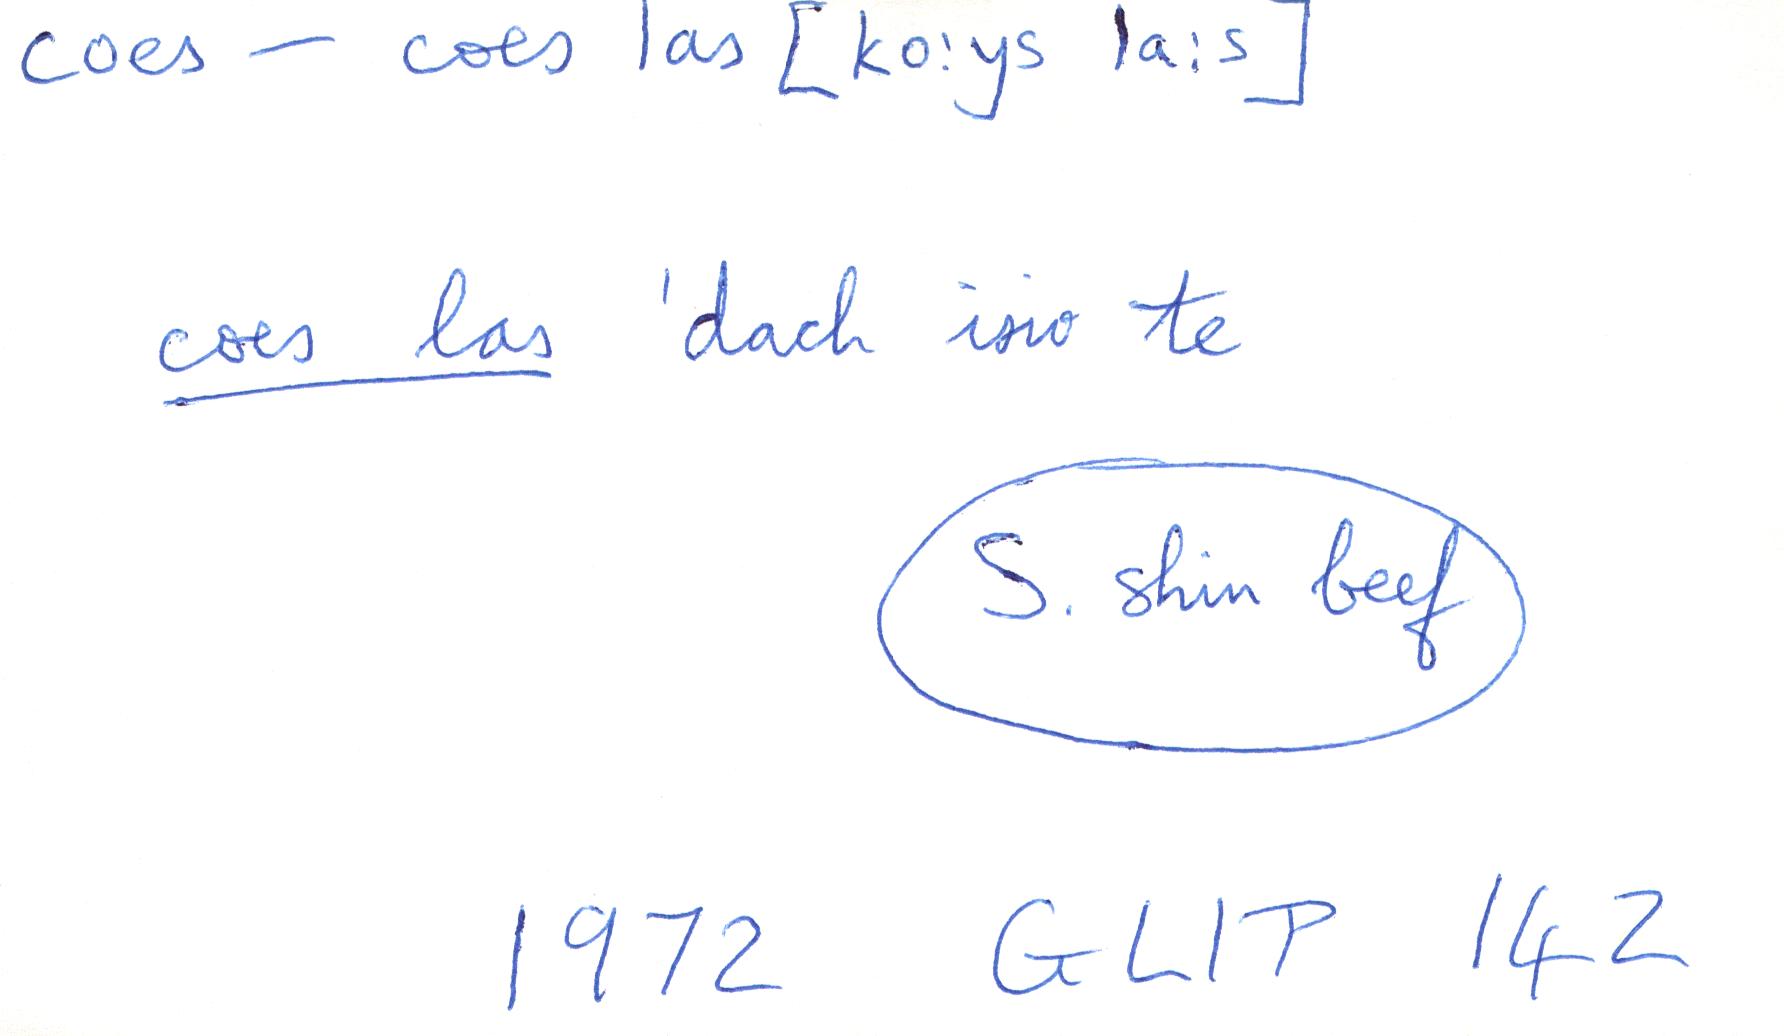 coes – coes las [ko:ys la:s]
coes las 'dach isio te
S. shin beef
1972 GLIP 142